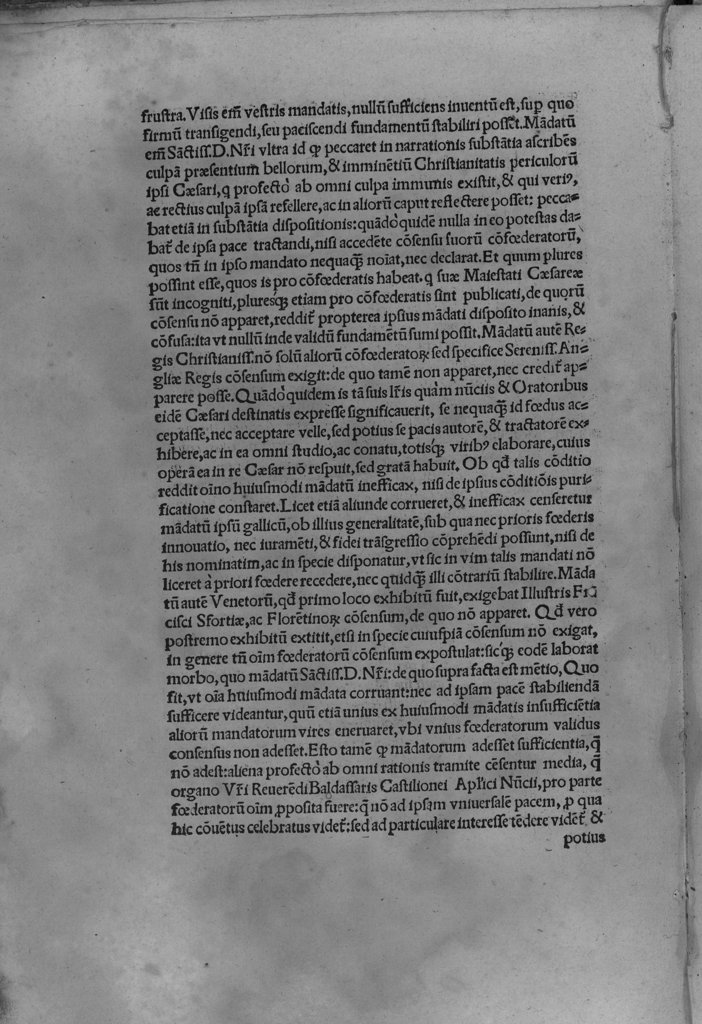 frustra. Visis em̃ vestris mandatis, nullũ sufficiens inuentũ est, suꝑ quo
firmũ transigendi, seu paciscendi fundamentũ stabiliri posset. Mãdatũ
em̃ Sãctiss. D. Nr̃i vltra id ꝙ peccaret in narrationis substãtia ascribẽs
culpã præsentium bellorum, & imminẽtiũ Christianitatis periculorũ
ipsi Cæsari, q profectò ab omni culpa immunis existit, & qui veriꝰ,
ac rectius culpã ipsã refellere, ac in aliorũ caput reflectere posset: pecca-
bat etiã in substãtia dispositionis: quãdoquidẽ nulla in eo potestas da-
bat̃ de ipsa pace tractandi, nisi accedẽte cõsensu suorũ cõfœderatorũ,
quos tñ in ipso mandato nequaq̃ noĩat, nec declarat. Et quum plures
possint esse, quos is pro cõfœderatis habeat. q suæ Maiestati Cæsareæ
sũt incogniti, pluresq̃ etiam pro cõfœderatis sint publicati, de quorũ
cõsensu nõ apparet, reddit̃ propterea ipsius mãdati dispositio inanis, &
cõfusa: ita vt nullũ inde validũ fundamẽtũ sumi possit. Mãdatũ autẽ Re-
gis Christianiss. nõ solũ aliorũ cõfœderatoꝝ sed specifice Sereniss. An-
gliæ Regis cõsensum exigit: de quo tamẽ non apparet, nec credit̃ ap-
parere posse. Quãdoquidem is tã suis lr̃is quàm nũciis & Oratoribus
eidẽ Cæsari destinatis expresse significauerit, se nequaq̃ id fœdus ac-
ceptasse, nec acceptare velle, sed potius se pacis autorẽ, & tractatorẽ ex-
hibere, ac in ea omni studio, ac conatu, totisq̃ viribꝰ elaborare, cuius
operã ea in re Cæsar nõ respuit, sed gratã habuit. Ob qđ talis cõditio
reddit oĩno huiusmodi mãdatũ inefficax, nisi de ipsius cõditiõis puri-
ficatione constaret. Licet etiã aliunde corrueret, & inefficax censeretur
mãdatũ ipsũ gallicũ, ob illius generalitatẽ, sub qua nec prioris fœderis
innouatio, nec iuramẽti, & fidei trãsgressio cõprehẽdi possunt, nisi de
his nominatim, ac in specie disponatur, vt sic in vim talis mandati nõ
liceret à priori fœdere recedere, nec quidq̃ illi cõtrariũ stabilire. Mãda
tũ autẽ Venetorũ, qđ primo loco exhibitũ fuit, exigebat Illustris Frã
cisci Sfortiæ, ac Florẽtinoꝝ cõsensum, de quo nõ apparet. Qđ vero
postremo exhibitũ extitit, etsi in specie cuiuspiã cõsensum nõ exigat,
in genere tñ oĩm fœderatorũ cõsensum expostulat: sicq̃ eodẽ laborat
morbo, quo mãdatũ Sãctiss. D. Nr̃i: de quo supra facta est mẽtio, Quo
fit, vt oĩa huiusmodi mãdata corruant: nec ad ipsam pacẽ stabiliendã
sufficere videantur, quũ etiã unius ex huiusmodi mãdatis insufficiẽtia
aliorũ mandatorum vires eneruaret, vbi vnius fœderatorum validus
consensus non adesset. Esto tamẽ ꝙ mãdatorum adesset sufficientia, q̃
nõ adest: aliena profectò ab omni rationis tramite cẽsentur media, q̃
organo Vr̃i Reuerẽdi Baldassaris Castilionei Apl̃ici Nũcii, pro parte
fœderatorũ oĩm ꝓposita fuere: q̃ nõ ad ipsam vniuersalẽ pacem, ꝓ qua
hic cõuẽtus celebratus videt̃: sed ad particulare interesse tẽdere vidẽt̃ &
potius